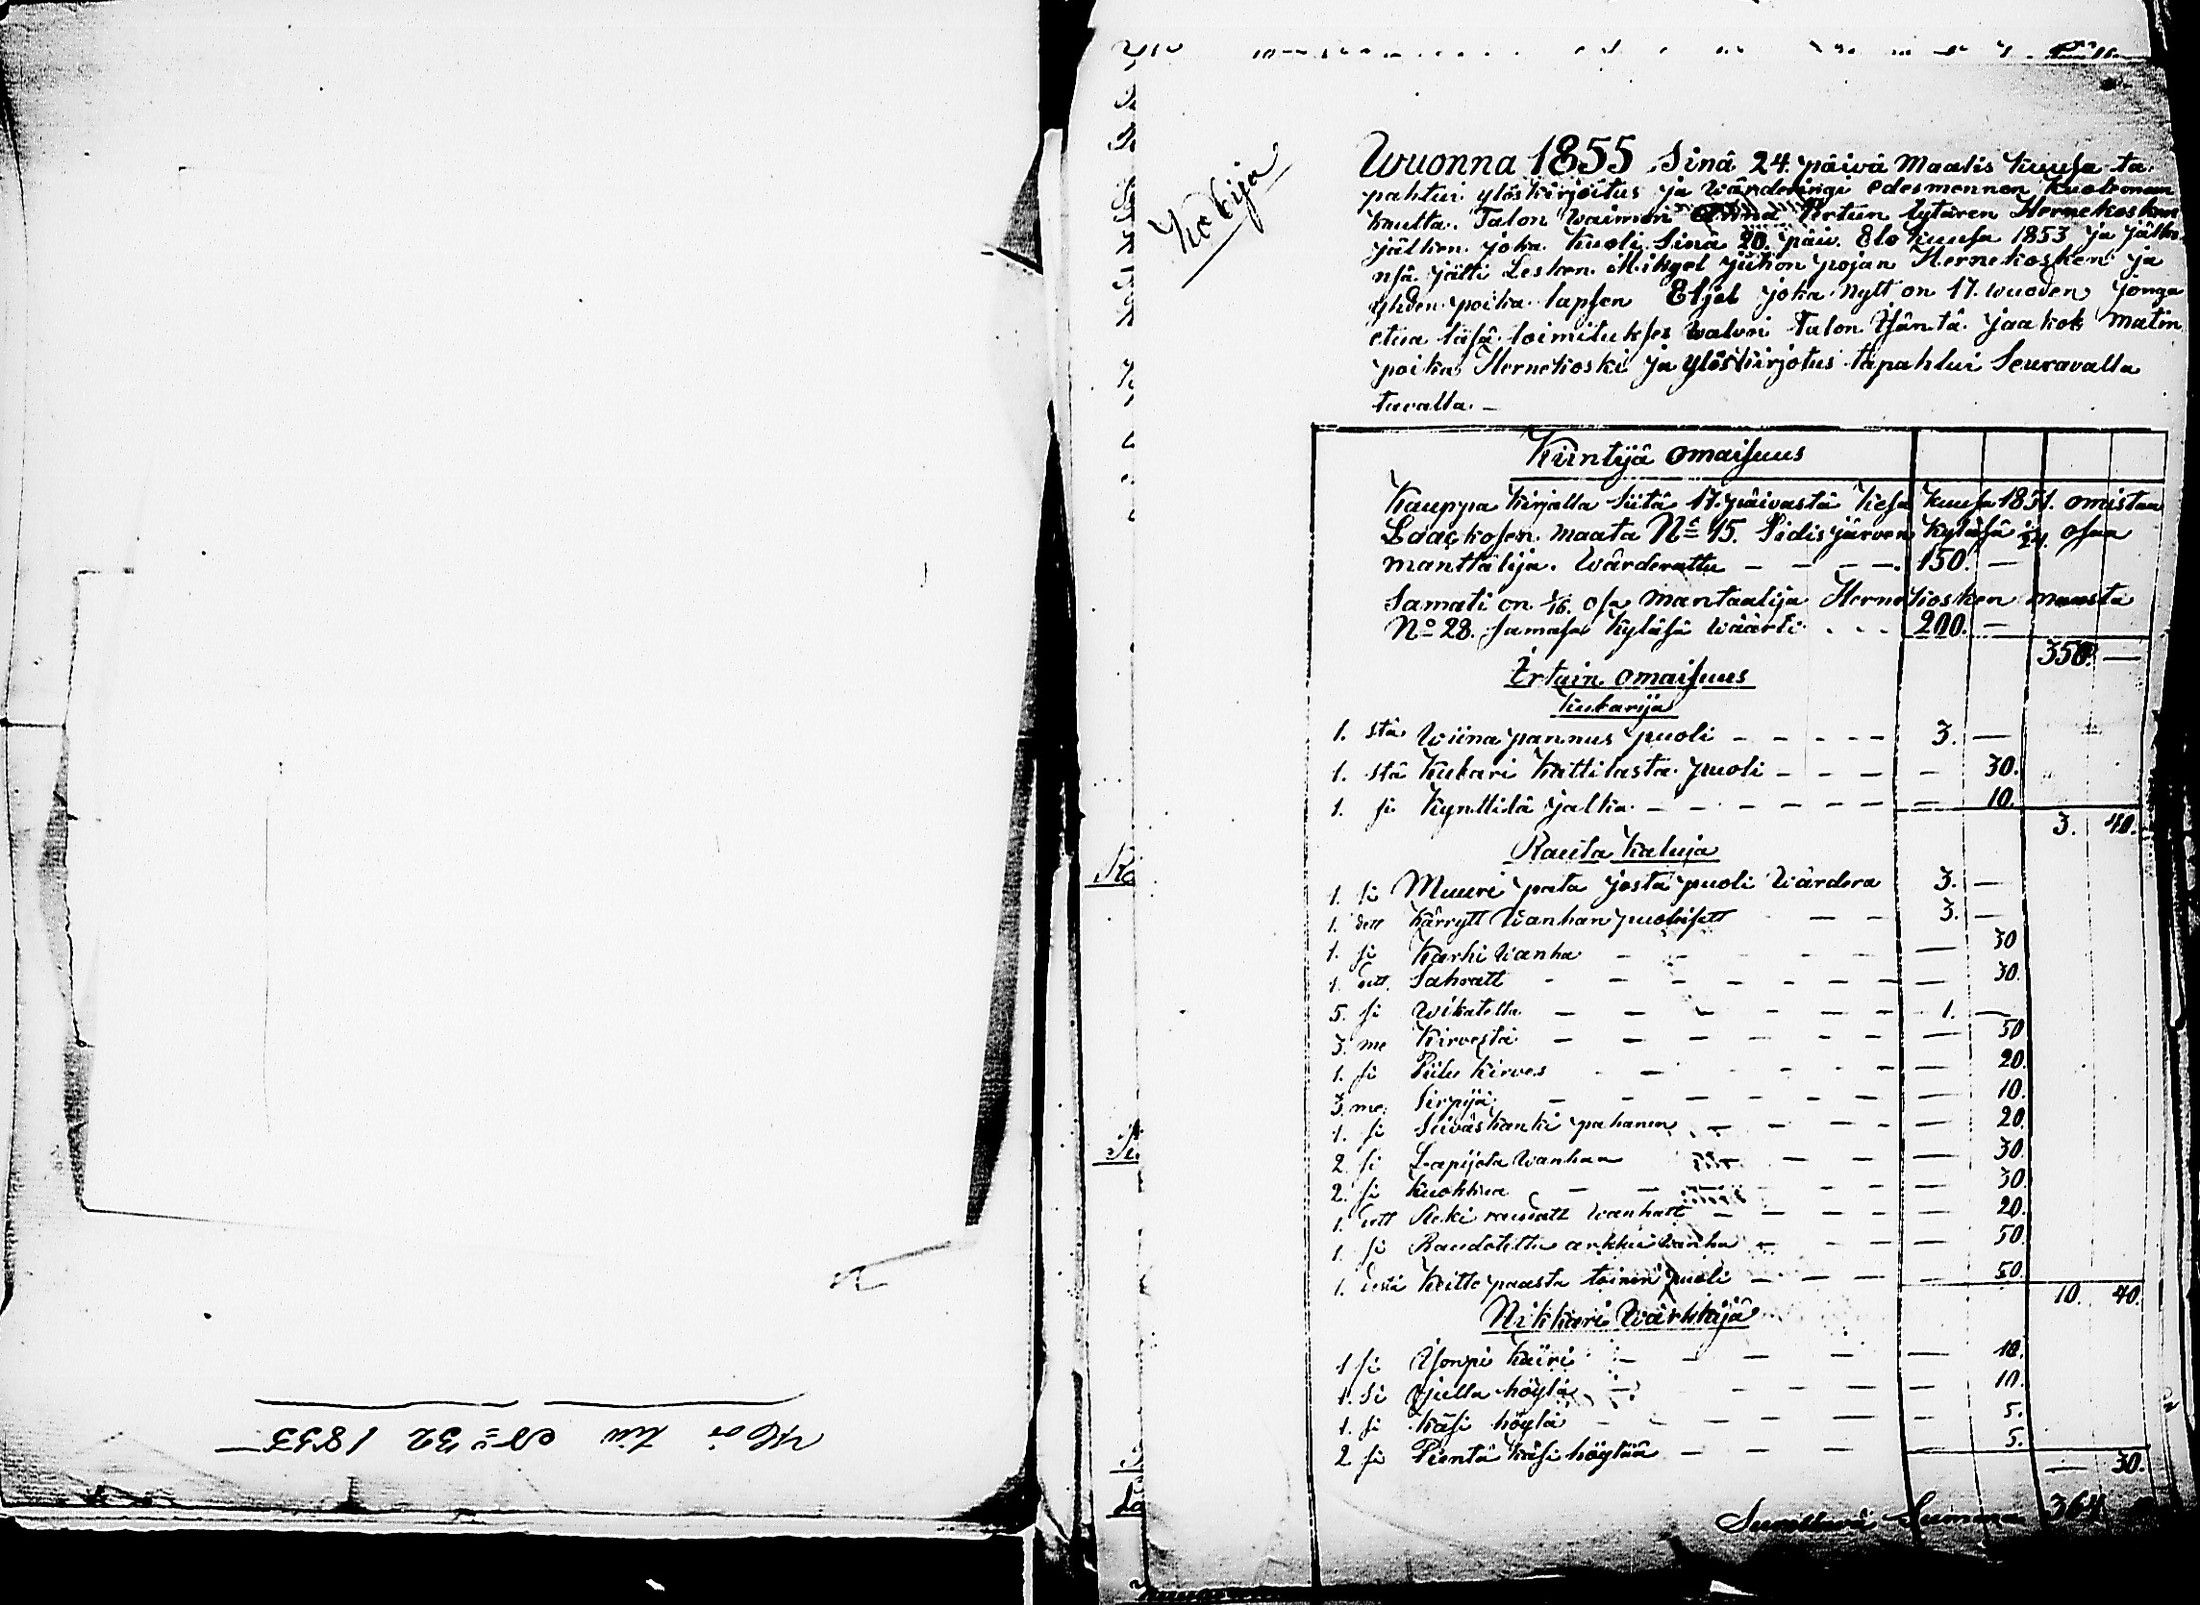 Kopija
Wuonna 1855 Sinä 24. päivä Maalis kuusa ta-
pahtui ylöskirjoitus ja wärderingi edesmennen kuoleman
kautta. Talon waimon Anna Ertun tytären Hernekosken
jälken. joka kuoli Sinä 20. päiv. Elo kuusa 1853 ja jälke-
nsä jätti Lesken Mikgel juhon pojan Hernekosken ja
yhden poika lapsen Eljel joka nytt on 17. wuoden jonga
etua täsä toimitukses walvoi Talon Isäntä Jaakob matin
poika Hernekoski ja ylöskirjotus tapahtui Seuravalla
tavalla. —
Kiintijä omaisuus
Kauppa kirjalla siitä 17. päivästä kesä kuusa 1831. omistaa
maata No 15. Pidisjärven kyläsä 1/24. osaa
manttälija. Wärderattu — — — — 150. —
Samati on 1/16. osa mantaalija Hernekosken maasta
No 28. samasa kyläsä wäärti . . . 200. —
350. —
Irtain omaisuus
Kubarija
1. stä wiina pannus puoli — — — — — 3. —
1. stä kubari kattilasta puoli — — — — 30.
1. si kynttilä jalka — — — — — — — 10.
3. 40.
Rauta kaluja
1. si Muuri pata josta puoli wärdera 3. —
1. dett kärrytt wanhan puoleisett — — 3. —
1. si karhi wanha — — — — — 30
1. dett Sahratt — — — — — — — 30.
5. si wikatetta — — — — — — 1. —
3. me kirvestä — — — — — — — 50
1. si Piilu kirves — — — — — 20.
3. me. Sirpijä — — — — — — — 10.
1. si Seiväskanki pahanen — — — — — 20.
2. si Lapijota wanhaa — — — — 30.
2. si kuokkaa — — — — — — 30.
1. dett Reki raudatt wanhatt — — — — — 20.
1. si Raudotettu arkku wanha — — — — 50.
1. destä keitto paasta toinen puoli — — — — 50.
10. 40.
Nikkari wärkkäjä
1 si kairi — — — — — 10.
1. si höylä — — — — — 10.
1. si käsi höylä — — — — — 5.
2 si Pientä käsi höylää — — — 5.
— 30.
Summa 364
No 32 1855